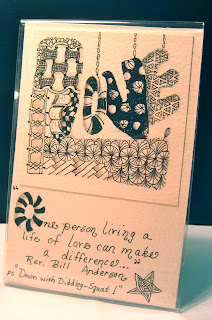 ONE
"One person living a
life of love can make
a difference..."
Rev. Bill Anderson
ps "Down with Diddley-Squat!"